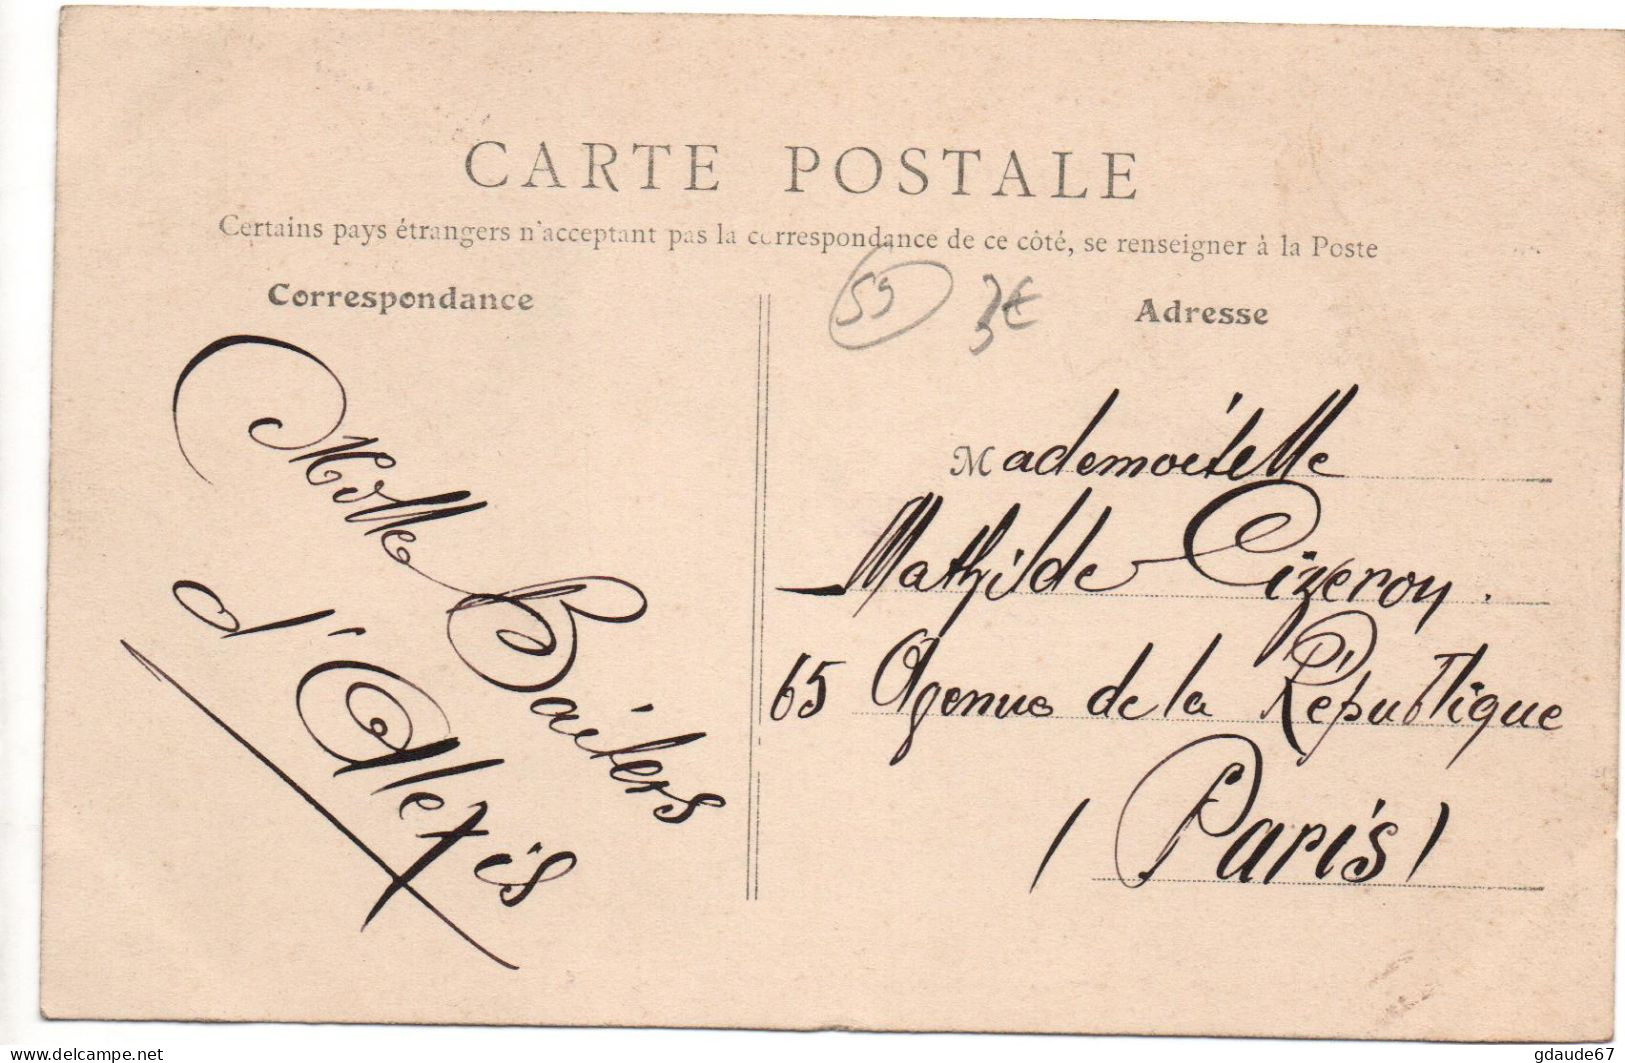 CARTE POSTALE
Certains pays étrangers n'acceptant pas la correspondance de ce côté, se renseigner à la Poste
Correspondance
59
3€
Adresse
Mille Baisers
d'Alexis
Mademoiselle
Mathilde Cizeron.
65 Avenue de la République
(Paris)
www.delcampe.net
gdaude67